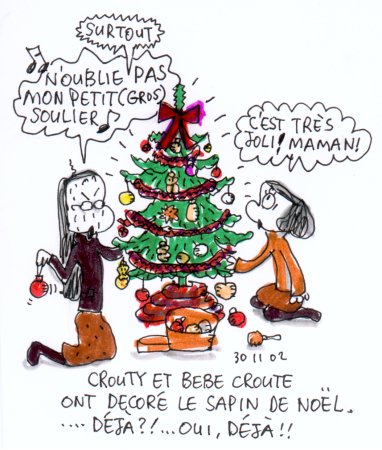 SURTOUT
N'OUBLIE PAS
MON PETIT (GROS)
SOULIER
C'EST TRÈS
JOLI! MAMAN!
30 11 02
CROUTY ET BEBE CROUTE
ONT DECORÉ LE SAPIN DE NOËL.
.... DÉJÀ?!...OUI, DÉJÀ!!